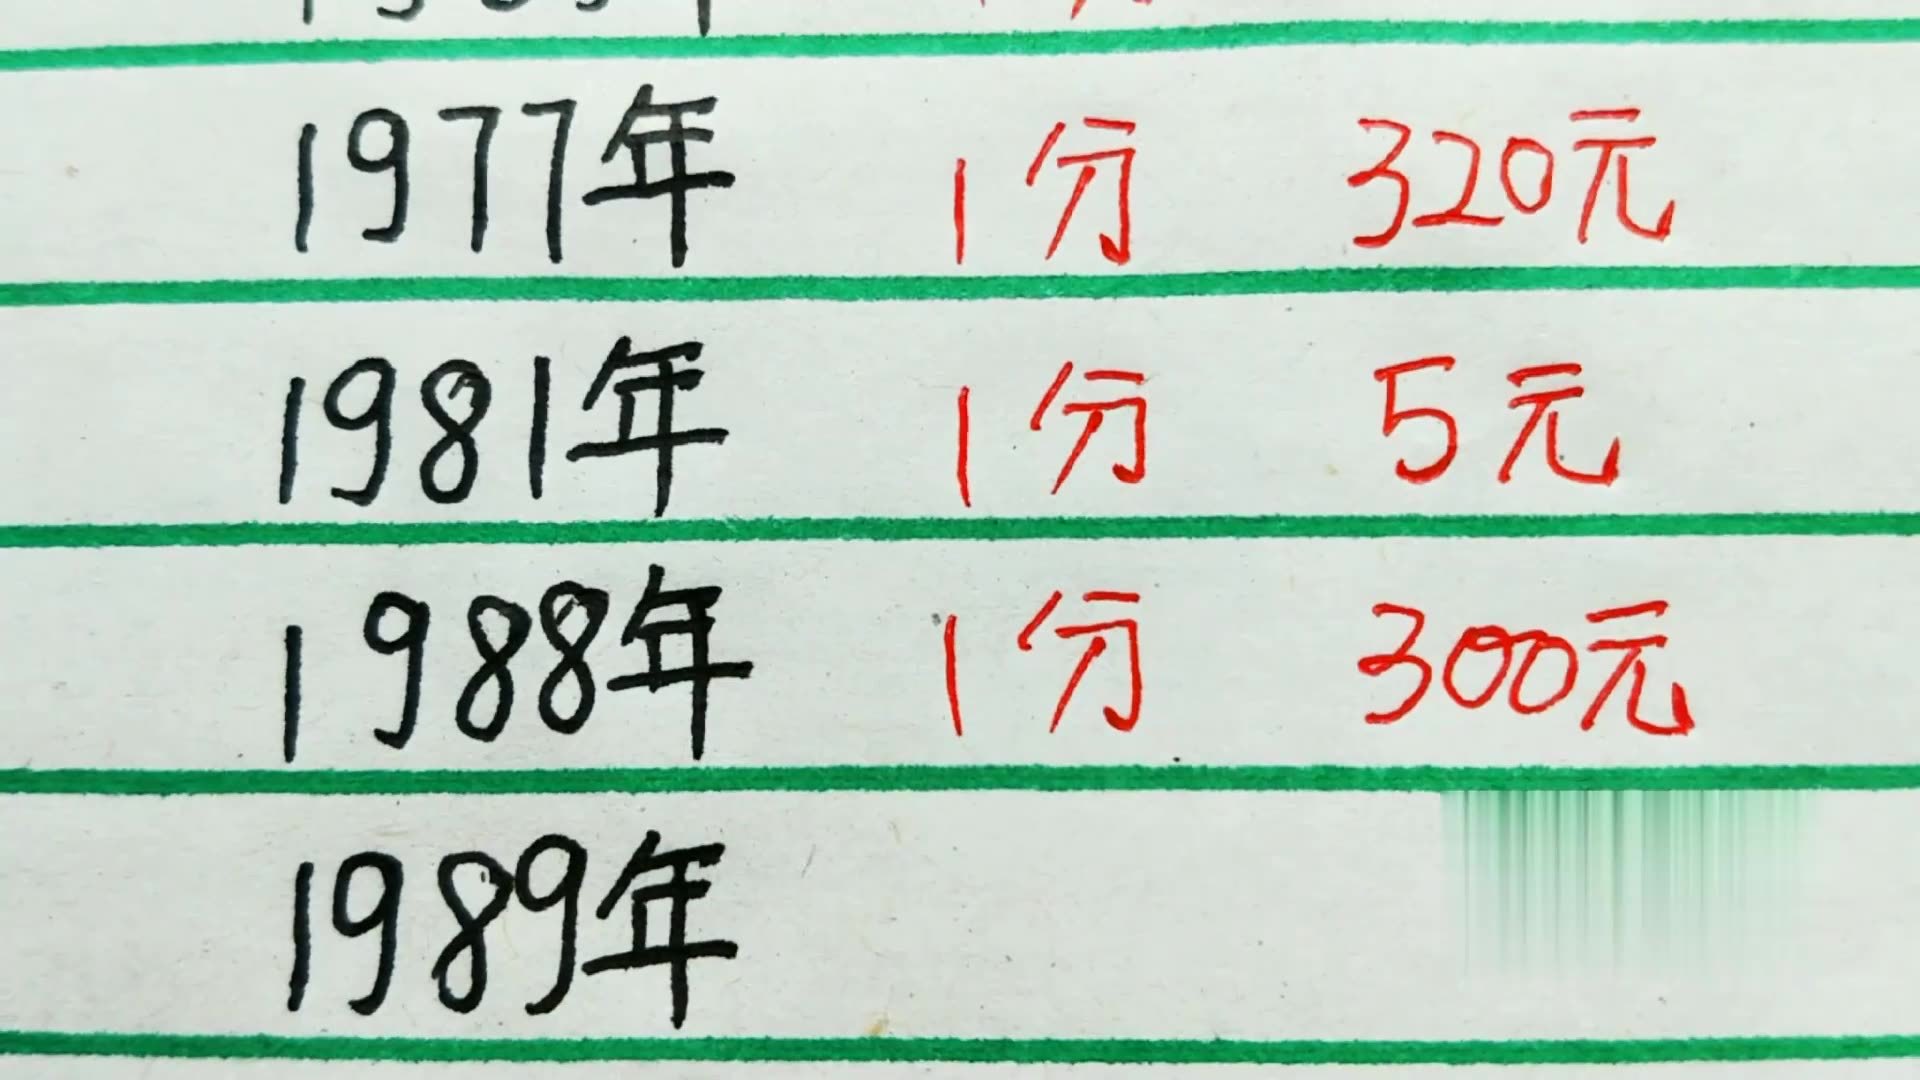 1977年 1分 320元
1981年 1分 5元
1988年 1分 300元
1989年